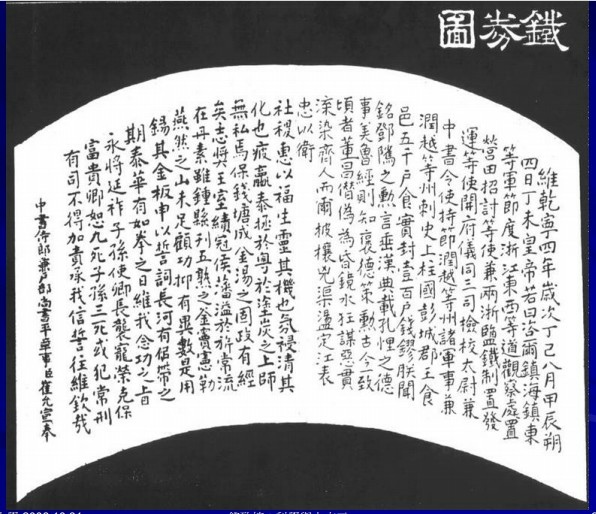 鐵券圖
維乾寧四年歲次丁巳八月甲辰朔
四日丁未皇帝若曰咨爾鎮海鎮東
等軍節度浙江東西等道觀察處置
營田招討等使兼兩浙鹽鐵制置發
運等使開府儀同三司檢校太尉兼
中書令使持節潤越等州諸軍事兼
潤越等州刺史上柱國彭城郡王食
邑五千戶食實封壹百戶錢鏐朕聞
銘鄧騭之勳言垂漢典載孔悝之德
事美魯經則知褒德策勳古今致
頃者董昌僭偽為昏鏡水狂謀惡貫
渫染齊人而爾披攘兇渠盪定江表
忠以衛
社稷惠以福生靈其機也氛祲清其
化也疲羸泰拯於粵於塗炭之上師
無私焉保錢塘成金湯之固政有經
矣志獎王室績冠侯藩溢於旂常流
在丹素雖鍾繇刊五熟之釜竇憲勒
燕然之山未足顯功抑有異數是用
錫其金板申以誓詞長河有似帶之
期泰華有如拳之日維我念功之旨
永將延祚子孫使卿長襲寵榮克保
富貴卿恕九死子孫三死或犯常刑
有司不得加責承我信誓往維欽哉
中書侍郎兼戶部尚書平章事臣崔允宣奉